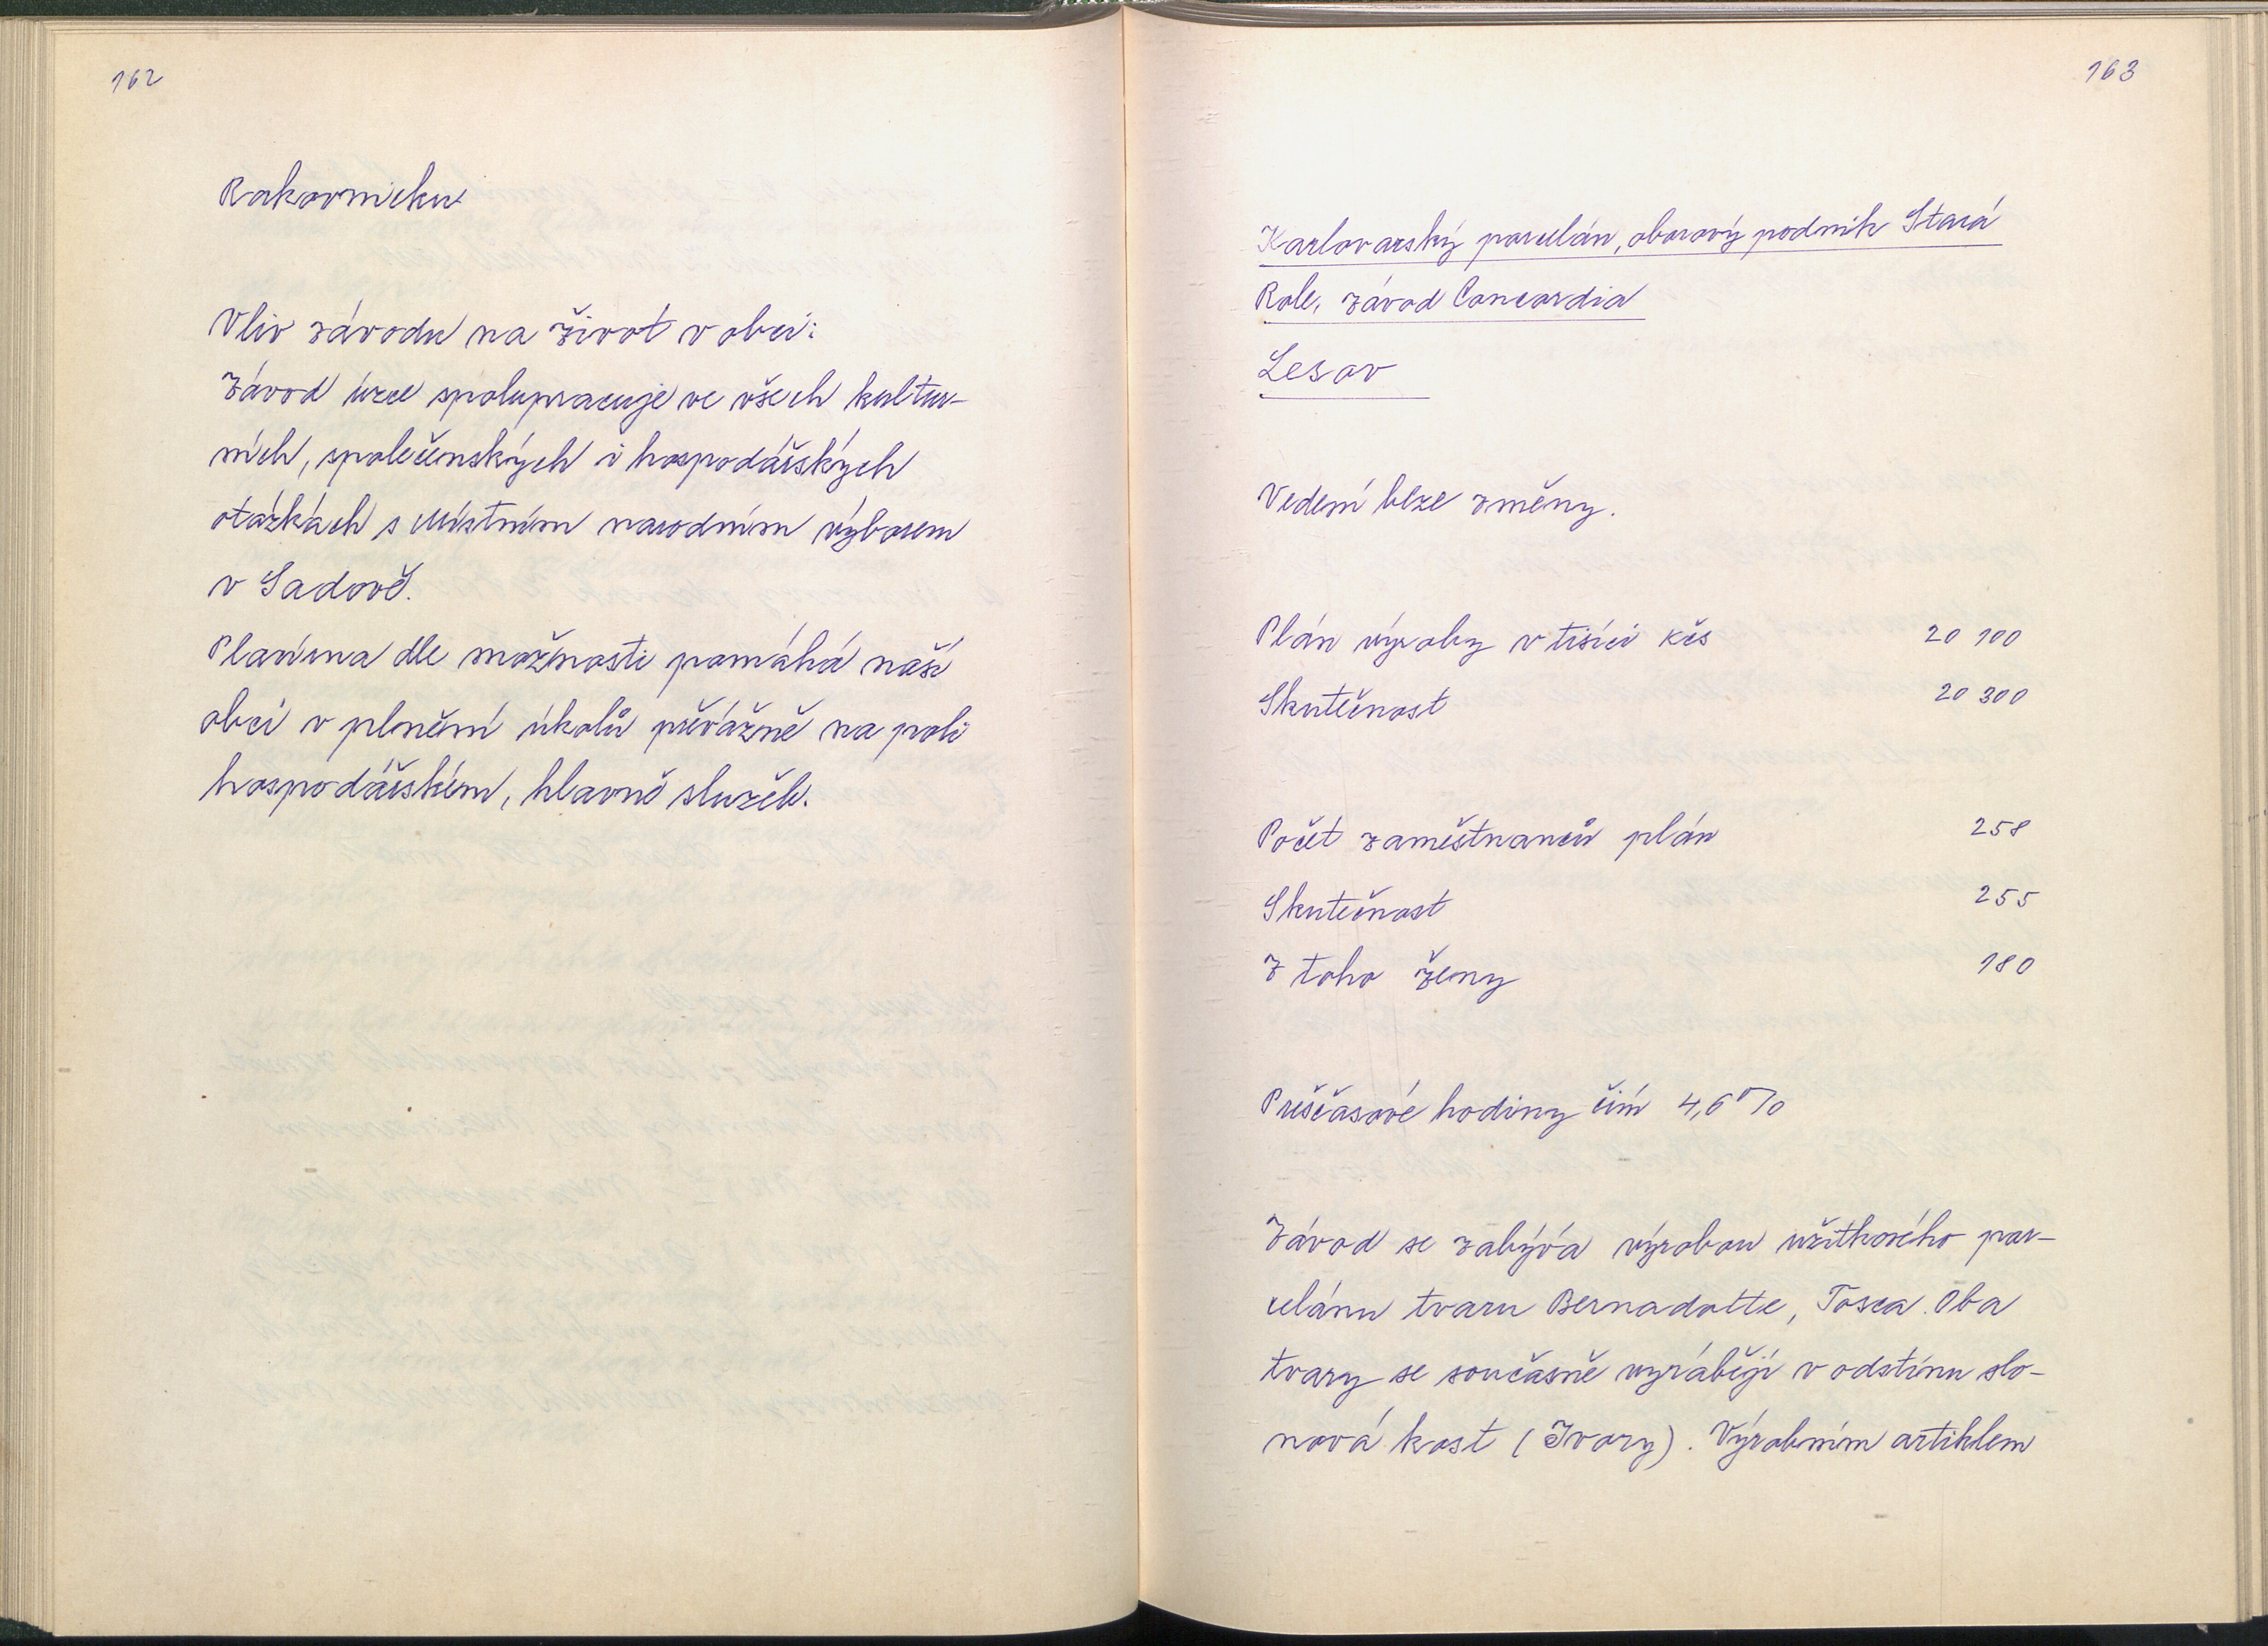 162
Rakovnicku.
Vliv závodu na život v obci:
Závod úzce spolupracuje ve všech kultur-
ních, společenských i hospodářských
otázkách s Místním narodním výborem
v Sadově.
Plavírna dle možnosti pomáhá naší
obci v plnění úkolů převážně na poli
hospodářském, hlavně služeb.
163
Karlovarský porcelán, oborový podnik Stará
Role, závod Concordia
Lesov
Vedení beze změny.
Plán výroby v tisíci Kčs 20 100
Skutečnost 20 300
Počet zaměstnanců plán 258
Skutečnost 255
Z toho ženy 180
Přesčasové hodiny činí 4,6 %
Závod se zabývá výrobou užitkového por-
celánu tvaru Bernadotte, Tosca. Oba
tvary se současně vyrábějí v odstínu slo-
nová kost (Ivory). Výrobním artiklem